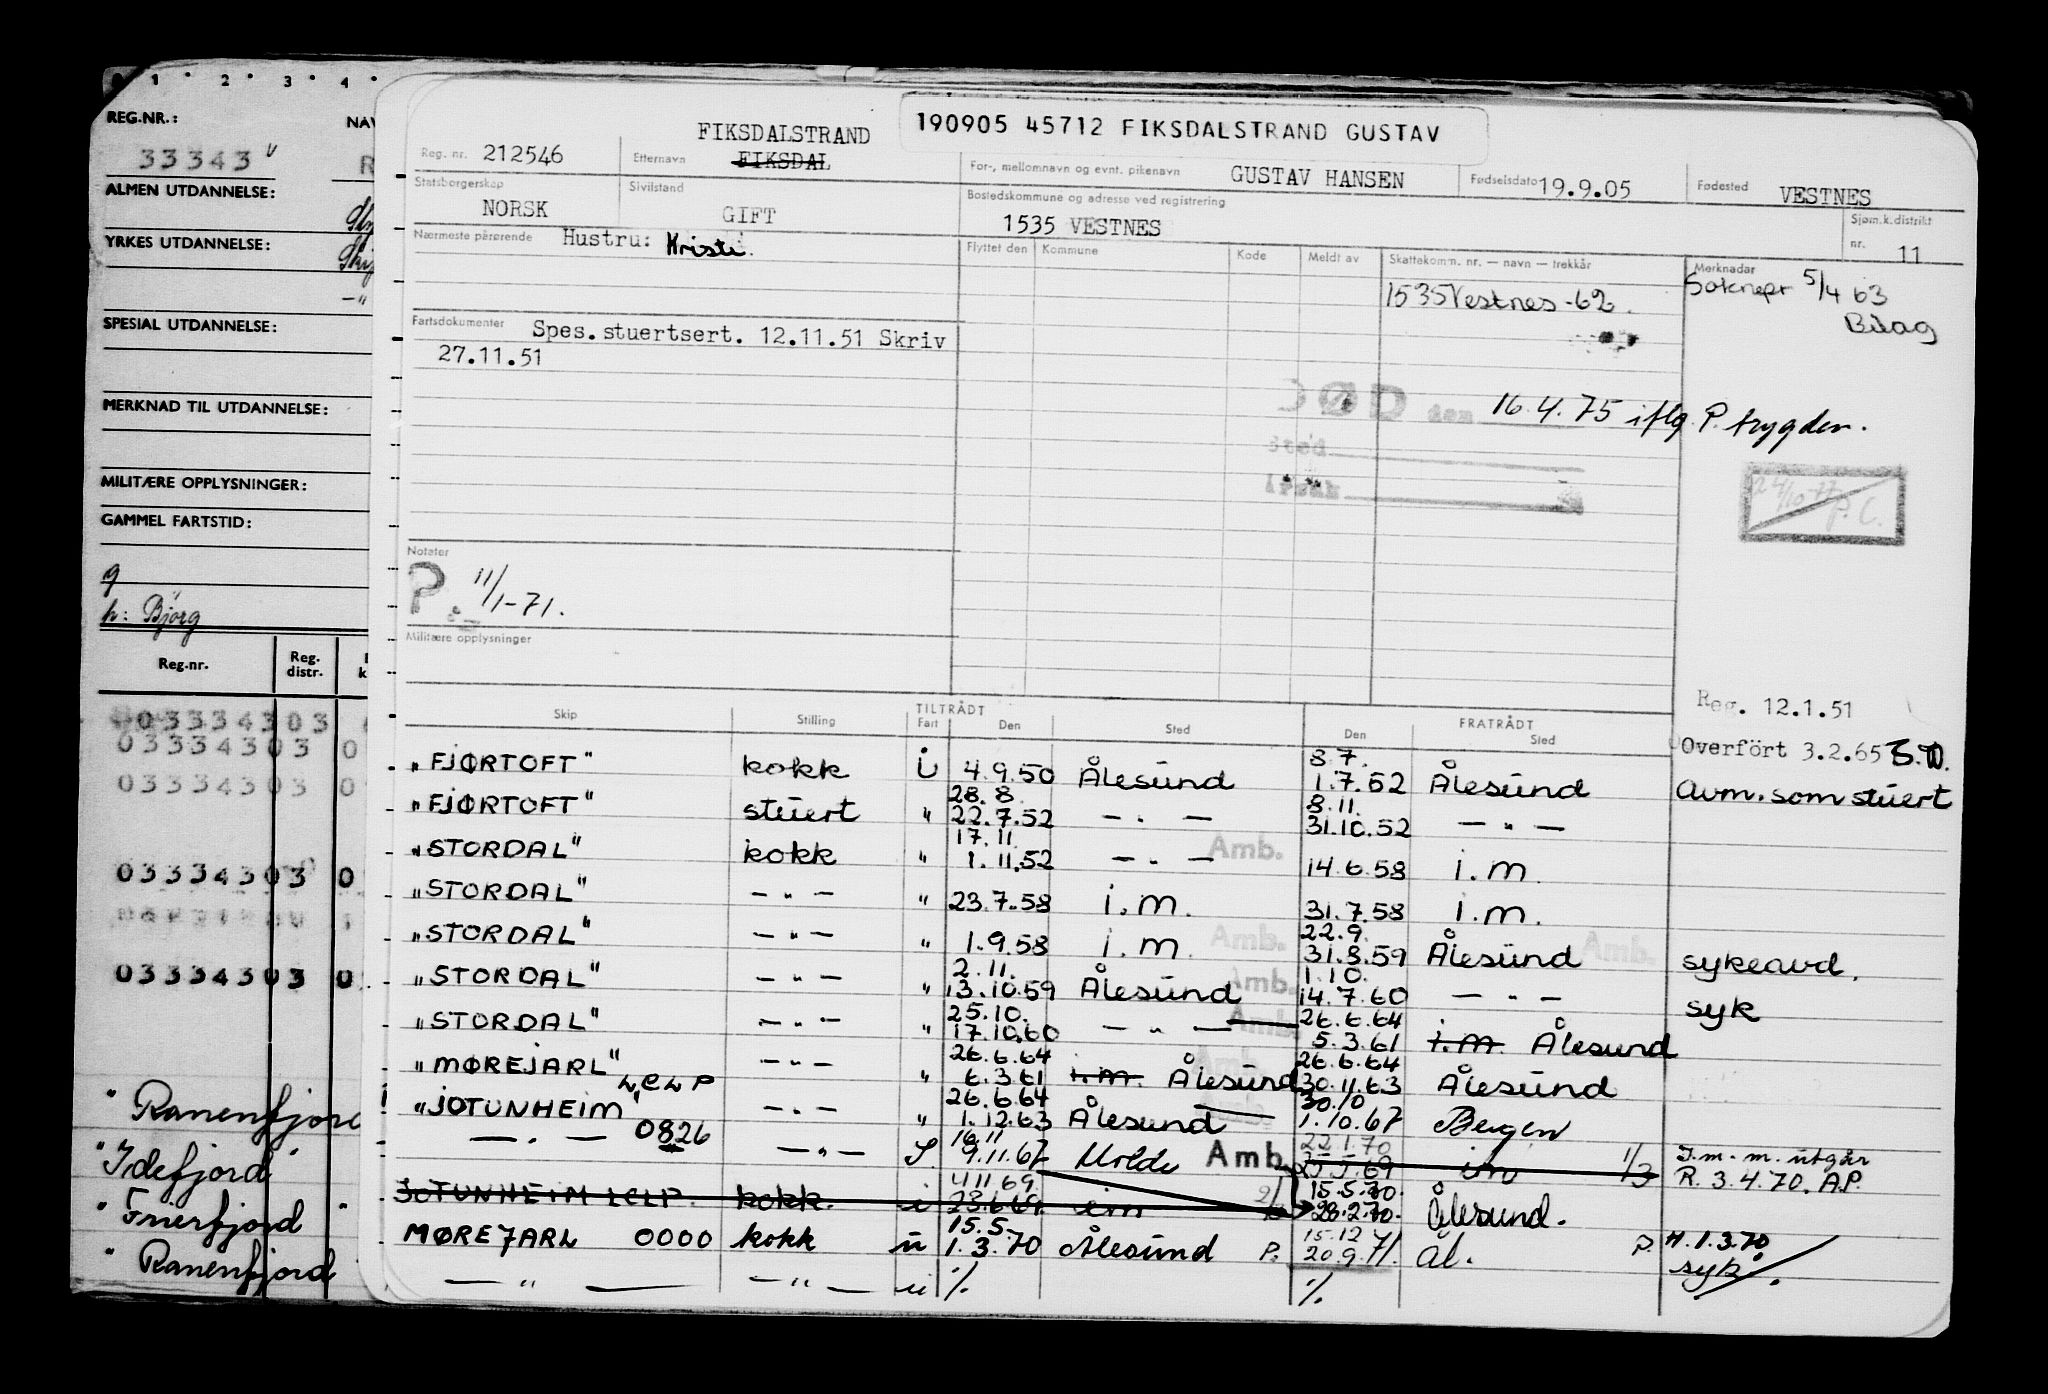 0 1 2 3 4
REG.NR.:
33343
ALMEN UTDANNELSE:
YRKES UTDANNELSE:
SPESIAL UTDANNELSE:
MERKNAD TIL UTDANNELSE:
MILITÆRE OPPLYSNINGER:
GAMMEL FARTSTID:
g
h: Bjørg
Reg.nr. Reg. distr.
03334303
03334303
03334303
03334303
03334303
"Ranenfjord
"Idefjord"
"Frierfjord "
"Ranenfjord
190905 45712 FIKSDALSTRAND GUSTAV
FIKSDALSTRAND
Reg. nr. 212546 Etternavn FIKSDAL For-, mellomnavn og evnt. pikenavn GUSTAV HANSEN Fødselsdato 19.9.05 Fødested VESTNES
Statsborgerskap NORSK Sivilstand GIFT Bostedskommune og adresse ved registrering 1535 VESTNES Sjøm.k.distrikt nr. 11
Nærmeste pårørende Hustru: Kristi. Flyttet den Kommune Kode Meldt av Skattekom.n. nr. — navn — trekkår Merknadar
1535 Vestnes -62. 5/4 63
Bilag
Fartsdokumenter Spes. stuertsert. 12.11.51 Skriv
27.11.51
DØD den 16.4.75 iflg. P. trygden.
Sted
24/10-77 P.C.
Notater
P. 11/1-71.
Militære opplysninger
Reg. 12.1.51
Skip Stilling TILTRÅDT Fart Den Sted FRATRÅDT Den Sted
Overfört 3.2.65
8.7.
"FJØRTOFT" kokk i 4.9.50 Ålesund 1.7.52 Ålesund avm. som stuert
28.8. 8.11.
"FJØRTOFT" stuert " 22.7.52 — " — 31.10.52 — " —
17.11.
"STORDAL" kokk " 1.11.52 — " — Amb. 14.6.58 i.m.
"STORDAL" — " — " 23.7.58 i.m. 31.7.58 i.m.
22.9.
"STORDAL" — " — " 1.9.58 i.m. Amb. 31.8.59 Ålesund Amb. sykeavd.
2.11. 1.10.
"STORDAL" — " — " 13.10.59 Ålesund Amb. 14.7.60 — " — syk
25.10. 26.6.64
"STORDAL" — " — " 17.10.60 — " — Amb. 5.3.61 i.m. Ålesund
26.6.64 26.6.64
"MØREJARL" — " — " 6.3.61 i.m. Ålesund Amb. 30.11.63 Ålesund
LCLP 26.6.64 30.10
"JOTUNHEIM" — " — " 1.12.63 Ålesund Amb. 1.10.67 Bergen
16.11 22.1.70
— " — 0826 — " — 9.11.67 Molde Amb. 25.5.69 im 1/3 I.m.m. utgår
R. 3.4.70. A.P.
4.11.69. 15.5.70.
JOTUNHEIM LCLP. kokk. i 23.6.69 im 28.2.70. Ålesund.
15.5. 15.12
MØREJARL 0000 kokk u 1.3.70 Ålesund P. 20.9.71. Ål. P. H. 1.3.70
syk.
— " — — " — u %. %.